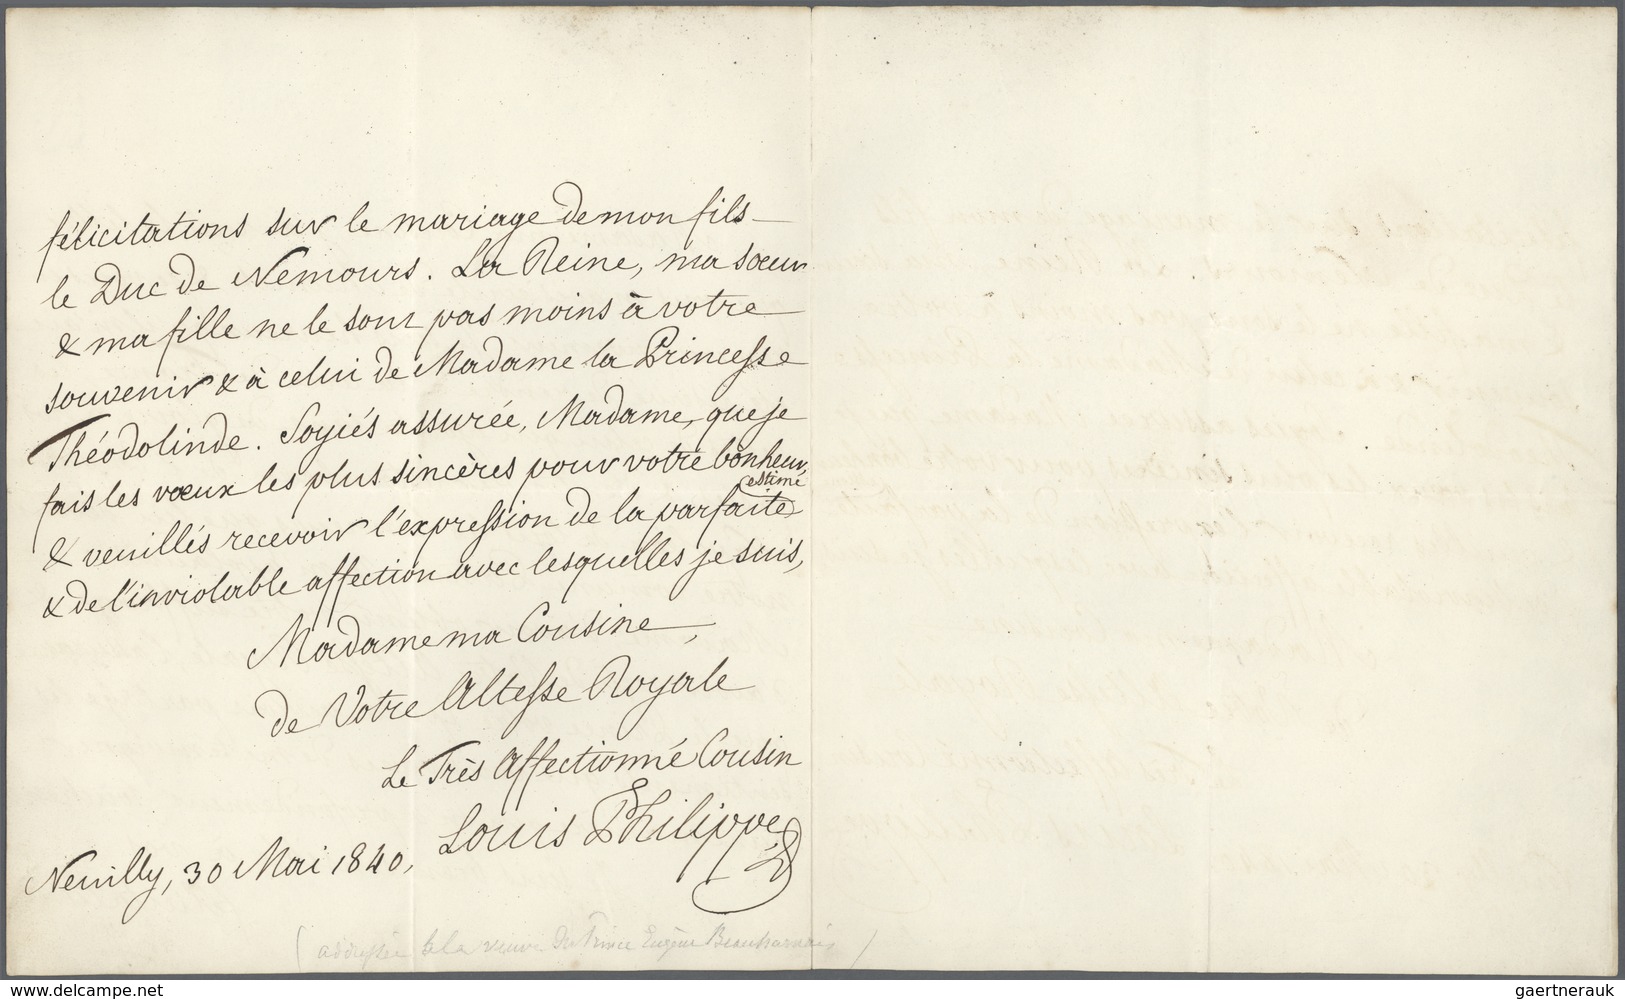 félicitations sur le mariage de mon fils
le Duc de Nemours. La Reine, ma sœur
& ma fille ne le sont pas moins à votre
souvenir & à celui de Madame la Princesse
Théodolinde. Soyiés assurée, Madame, que je
fais les vœux les plus sincères pour votre bonheur,
estime
& veuillés recevoir l'expression de la parfaite
& de l'inviolable affection avec lesquelles je suis,
Madame ma Cousine,
de Votre Altesse Royale
Le Très Affectionné Cousin
Louis Philippe
Neuilly, 30 Mai 1840,
(addressée à la veuve du Prince Eugène Beauharnais)
www.delcampe.net
gaertnerauk